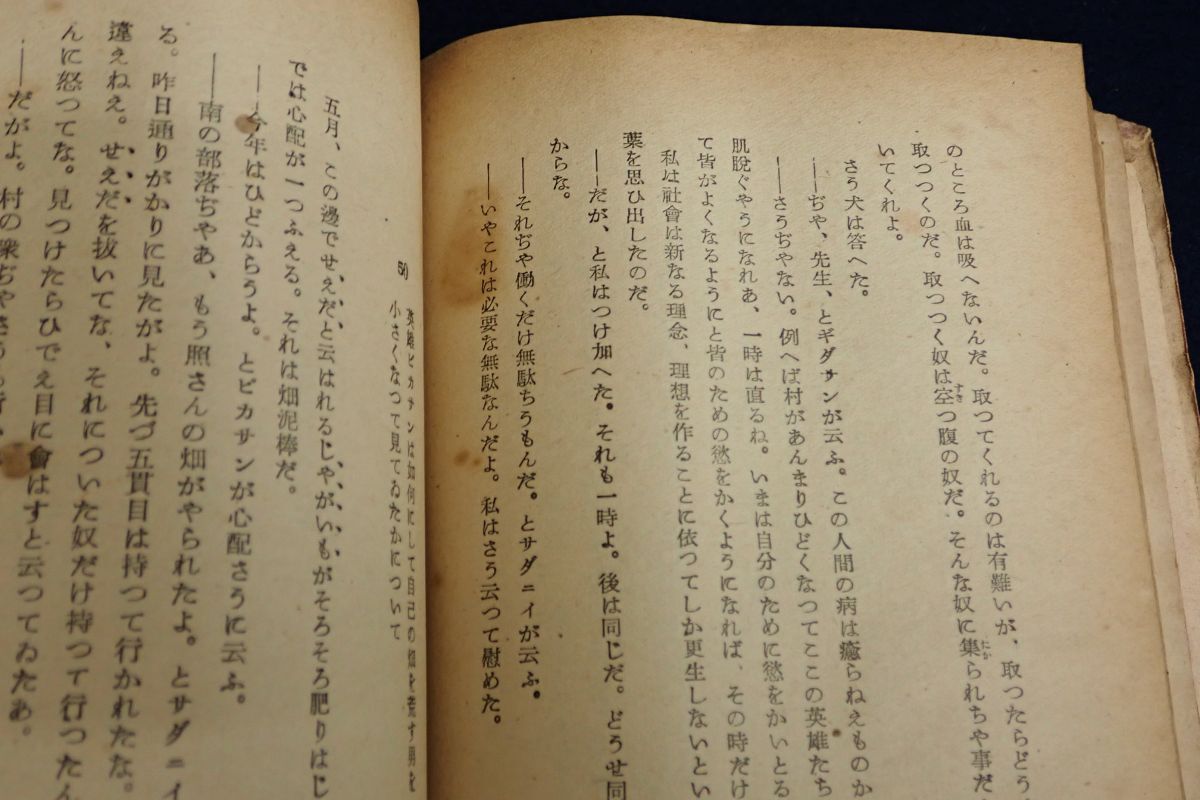 のところ血は吸へないんだ。取つてくれるのは有難いが、取つたらどう
取つつくのだ。取つつく奴は空つ腹の奴だ。そんな奴に集られちや事だ
すき
たか
いてくれよ。
さう犬は答へた。
――ぢや、先生、とギダサンが云ふ。この人間の病は癒らねえものか
――さうぢやない。例へば村があんまりひどくなつてここの英雄たち
肌脫ぐやうになれあ、一時は直るね。いまは自分のために慾をかいとる
て皆がよくなるようにと皆のための慾をかくようになれば、その時だけ
私は社會は新なる理念、理想を作ることに依つてしか更生しないとい
葉を思ひ出したのだ。
――だが、と私はつけ加へた。それも一時よ。後は同じだ。どうせ同
からな。
――それぢや働くだけ無駄ちうもんだ。とサダニイが云ふ。
――いやこれは必要な無駄なんだよ。私はさう云つて慰めた。
50
英雄ピカサンは如何にして自己の畑を荒す男を
小さくなつて見てゐたかについて
五月、この邊でせえだと云はれるじやがいもがそろそろ肥りはじ
では心配が一つふえる。それは畑泥棒だ。
――今年はひどからうよ。とピカサンが心配さうに云ふ。
――南の部落ぢやあ、もう照さんの畑がやられたよ。とサダニイ
る。昨日通りがかりに見たがよ。先づ五貫目は持つて行かれたな。
違えねえ。せえだを抜いてな、それについた奴だけ持つて行つたん
んに怒つてな。見つけたらひでえ目に會はすと云つてゐたあ。
――だがよ。村の衆ぢや